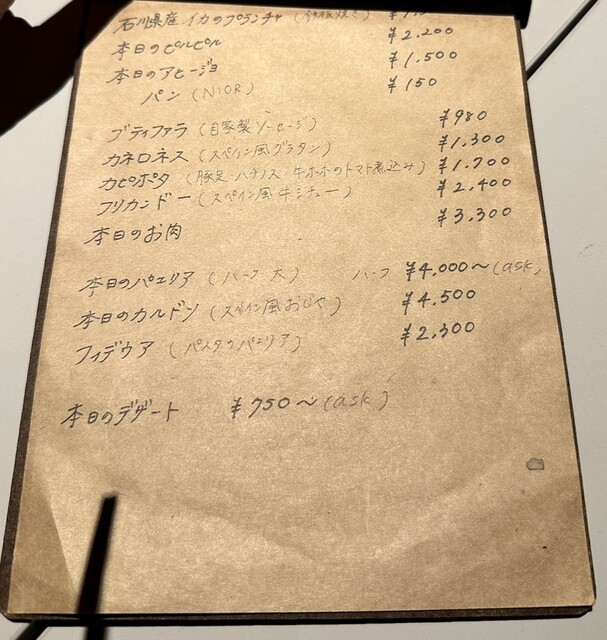 石川県産イカのプランチャ（鉄板焼き）
本日のピルピル ¥2.200
本日のアヒージョ ¥1.500
パン（NIOR） ¥150
ブティファラ（自家製ソーセージ） ¥980
カネロネス（スペイン風グラタン） ¥1.300
カピポタ（豚足・ハチノス・牛ホホのトマト煮込み） ¥1.700
フリカンドー（スペイン風牛シチュー） ¥2.400
本日のお肉 ¥3.300
本日のパエリア（ハーフ 大） ハーフ ¥4.000〜（ask）
本日のカルドソ（スペイン風おじや） ¥4.500
フィデウア（パスタのパエリア） ¥2.300
本日のデザート ¥750〜（ask）